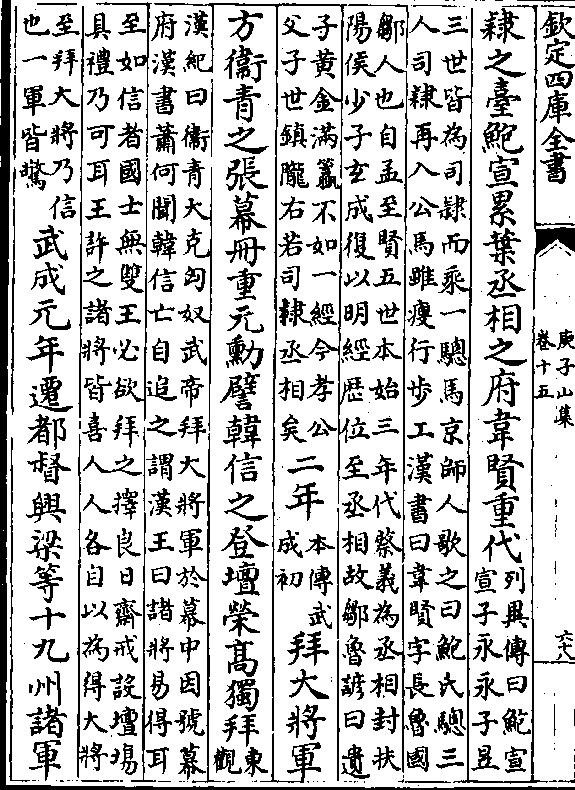 欽定四庫全書
庾子山集
卷十五
六十八
隸之臺鮑宣累葉丞相之府韋賢重代列異傳曰鮑宣
宣子永永子昱
三世皆為司隸而乘一驄馬京師人歌之曰鮑氏驄三
人司隸再入公馬雖瘦行歩工漢書曰韋賢字長魯國
鄒人也自孟至賢五世本始三年代蔡義為丞相封扶
陽侯少子玄成復以明經歴位至丞相故鄒魯諺曰遺
子黄金滿籯不如一經今孝公
父子世鎮隴右若司隸丞相矣
二年
本傳武
成初
拜大將軍
方衞青之張幕冊重元勳譬韓信之登壇榮髙獨拜
東
觀
漢紀曰衞青大克匈奴武帝拜大將軍於幕中因號幕
府漢書蕭何聞韓信亡自追之謂漢王曰諸將易得耳
至如信者國士無雙王必欲拜之擇良日齋戒設壇場
具禮乃可耳王許之諸將皆喜人人各自以為得大將
至拜大將乃信
也一軍皆驚
武成元年遷都督興梁等十九州諸軍